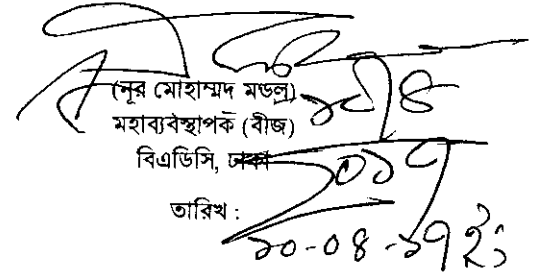 (নূর মোহাম্মদ মন্ডল)
মহাব্যবস্থাপক (বীজ)
বিএডিসি, ঢাকা
তারিখ :
১০-০৪-১৭ ইং